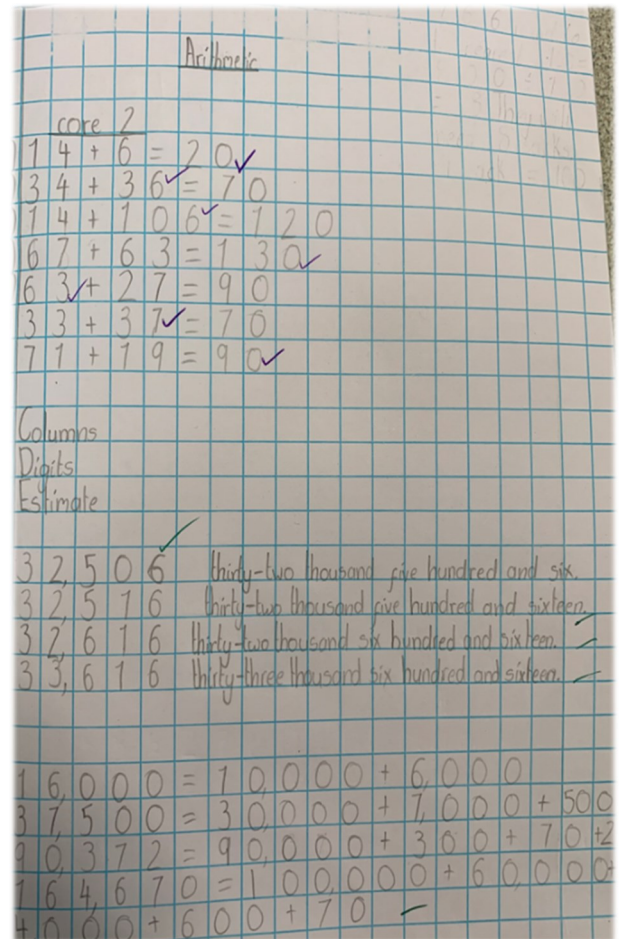 Arithmetic
core 2
14 + 6 = 20
34 + 36 = 70
14 + 106 = 120
67 + 63 = 130
63 + 27 = 90
33 + 37 = 70
71 + 19 = 90
Columns
Digits
Estimate
32,506 thirty-two thousand five hundred and six.
32,516 thirty-two thousand five hundred and sixteen.
32,616 thirty-two thousand six hundred and sixteen.
33,616 thirty-three thousand six hundred and sixteen.
16,000 = 10,000 + 6,000
37,500 = 30,000 + 7,000 + 500
90,372 = 90,000 + 300 + 70 + 2
164,670 = 100,000 + 60,000 +
4000 + 600 + 70